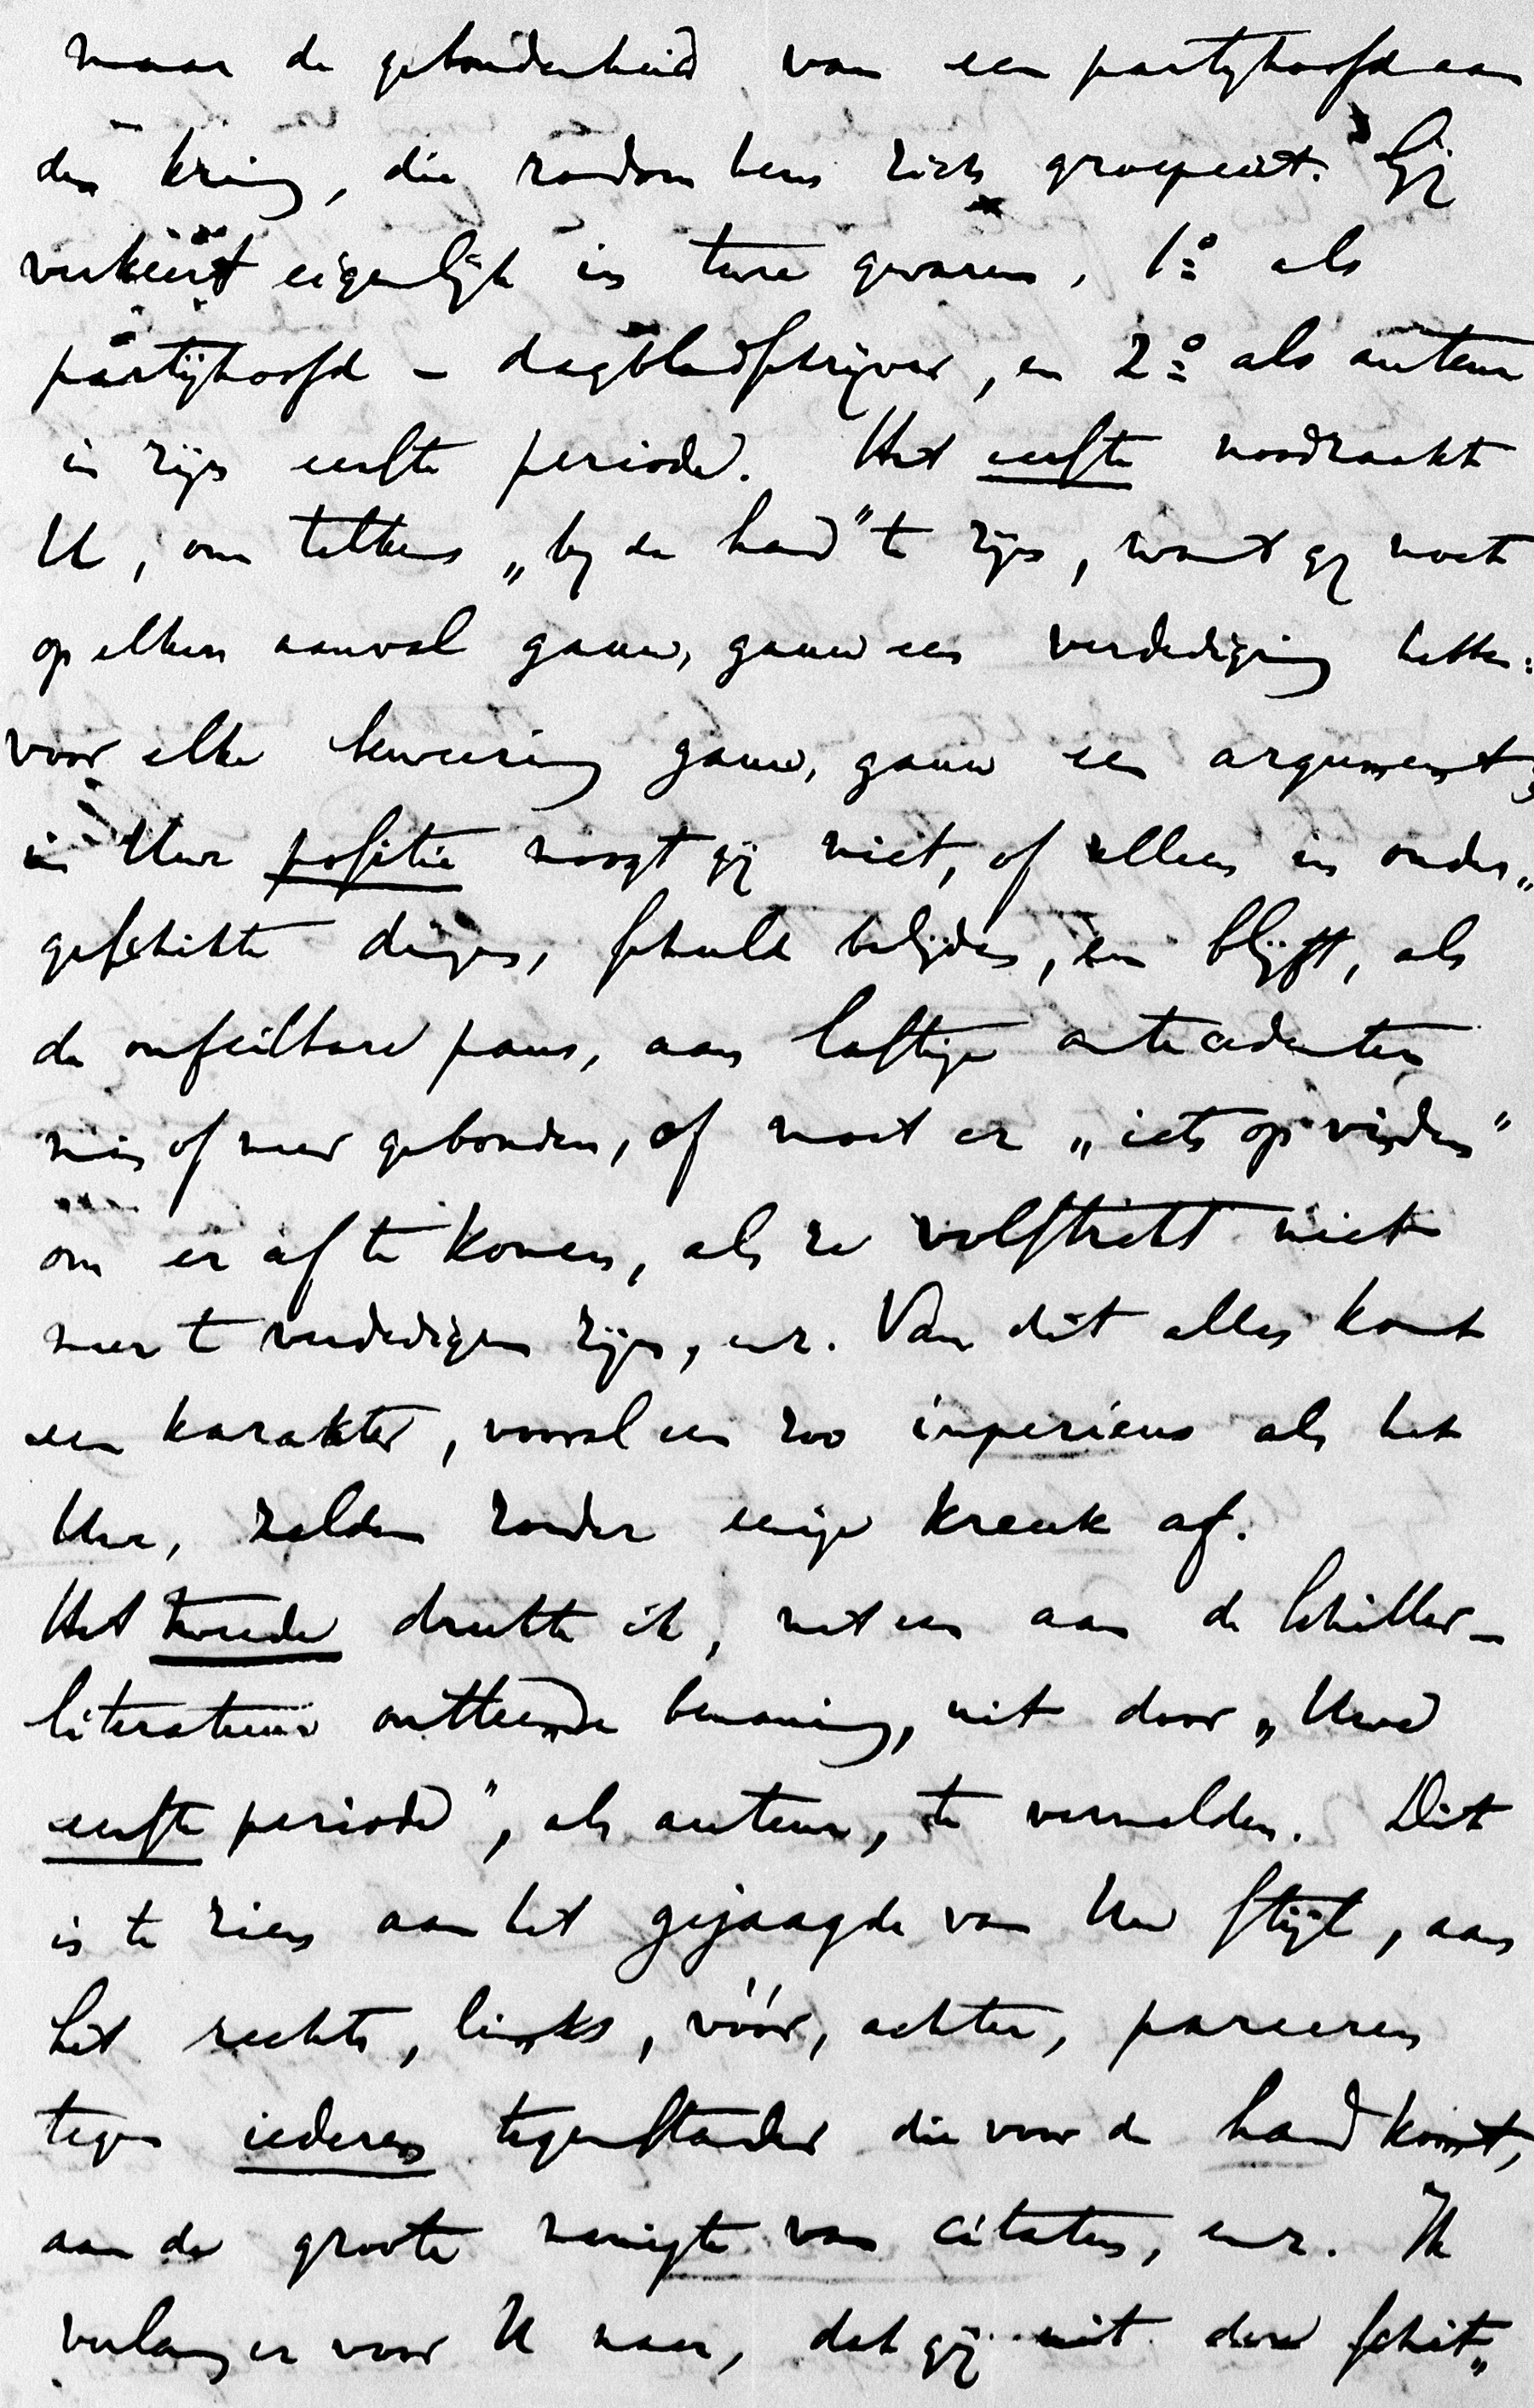 maar de gebondenheid van een partijhoofd aan
den kring, die rondom hem zich groepeert. Gij
verkeert eigenlijk in twee gevaren, 1º als
partijhoofd - dagbladschrijver, en 2º als auteur
in zijn eerste periode. Het eerste noodzaakt
U, om telkens „bij de hand" te zijn, want gij moet
op elken aanval gauw, gauw een verdediging hebben:
voor elke bewering gauw, gauw een argument;
in Uwe positie moogt gij niet, of alleen in onder„
geschikte dingen, schuld belijden, en blijft, als
de onfeilbare paus, aan lastige antecedenten
min of meer gebonden, of moet er „iets op vinden"
om er af te komen, als ze volstrekt niet
meer te verdedigen zijn, enz. Van dit alles komt
een karakter, vooral een zoo imperieus als het
Uwe, zelden zonder eenige kreuk af.
Het tweede drukte ik, met een aan de Schiller-
literatuur ontleende benaming, uit door „Uwe
eerste periode", als auteur, te vermelden. Dit
is te zien aan het gejaagde van Uw stijl, aan
het rechts, links, vóór, achter, pareeren
tegen iederen tegenstander die voor de hand komt,
aan de groote menigte van citaten, enz. Ik
verlang er voor U naar, dat gij uit deze schit„